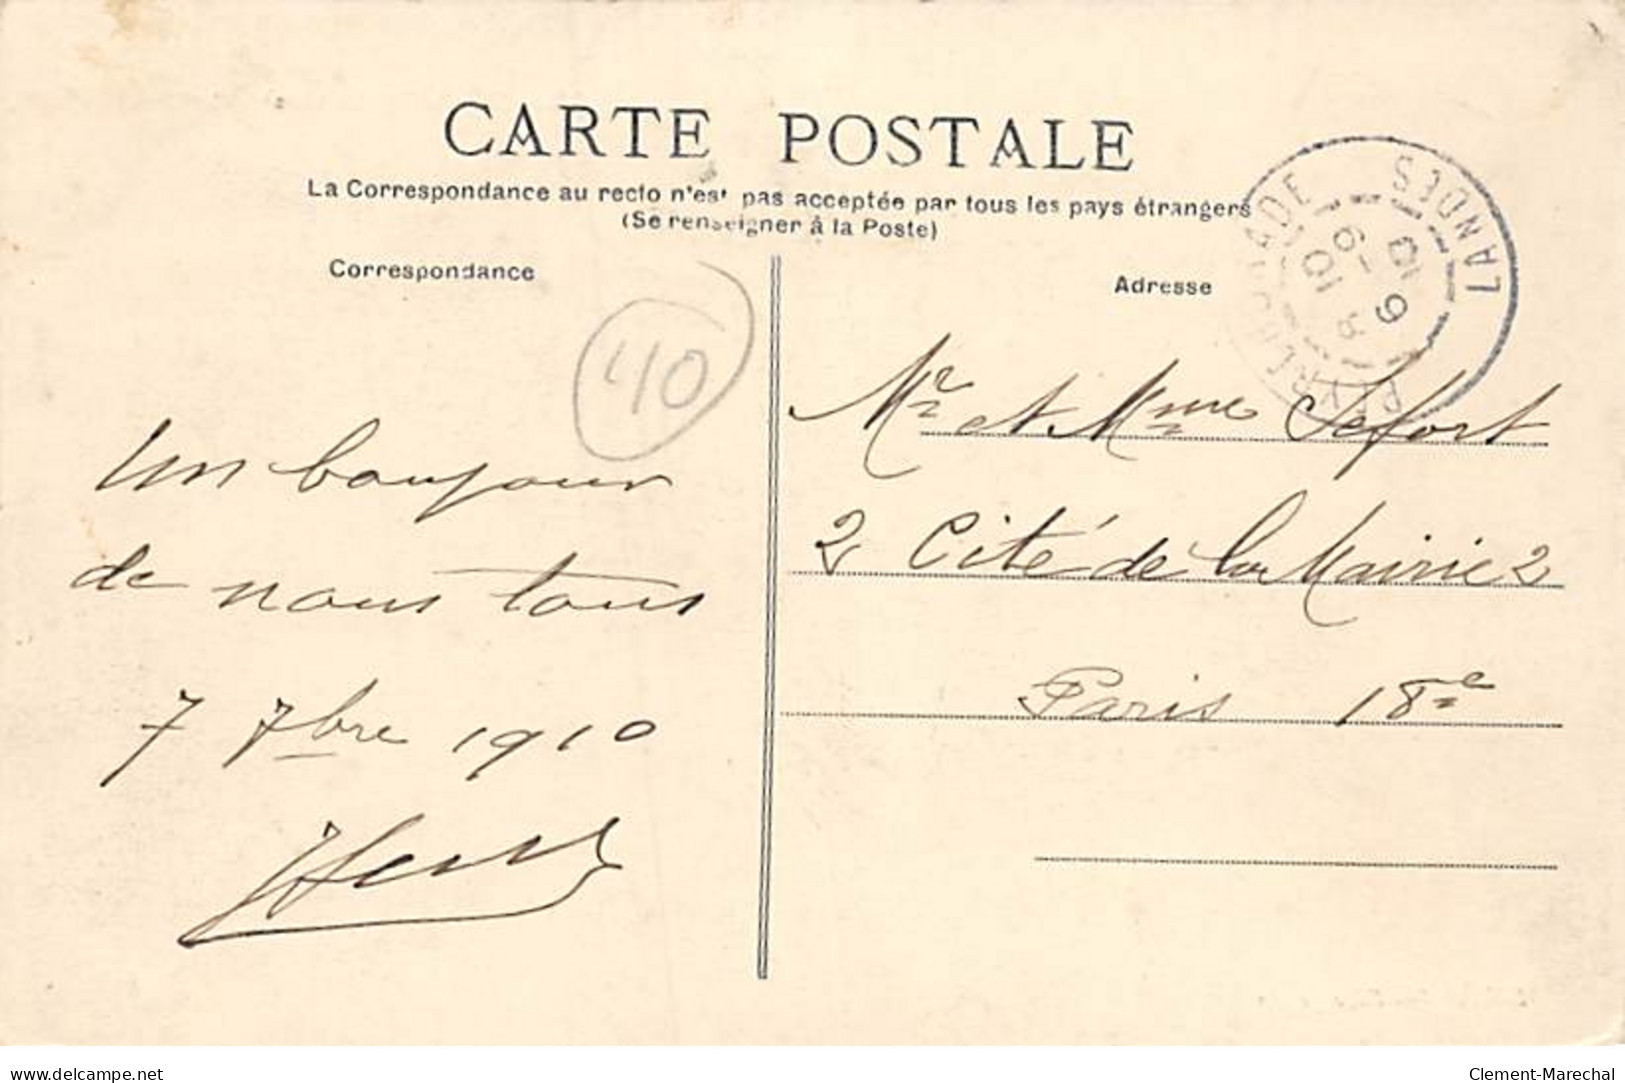 CARTE POSTALE
La Correspondance au recto n'est pas acceptée par tous les pays étrangers
(Se renseigner à la Poste)
Correspondance
Adresse
LANDES
10
6
9
10
40
Un bonjour
de nous tous
7 7bre 1910
Mr et Mme Lefort
2 Cité de la Mairie 2
Paris 18e
www.delcampe.net
Clement-Marechal